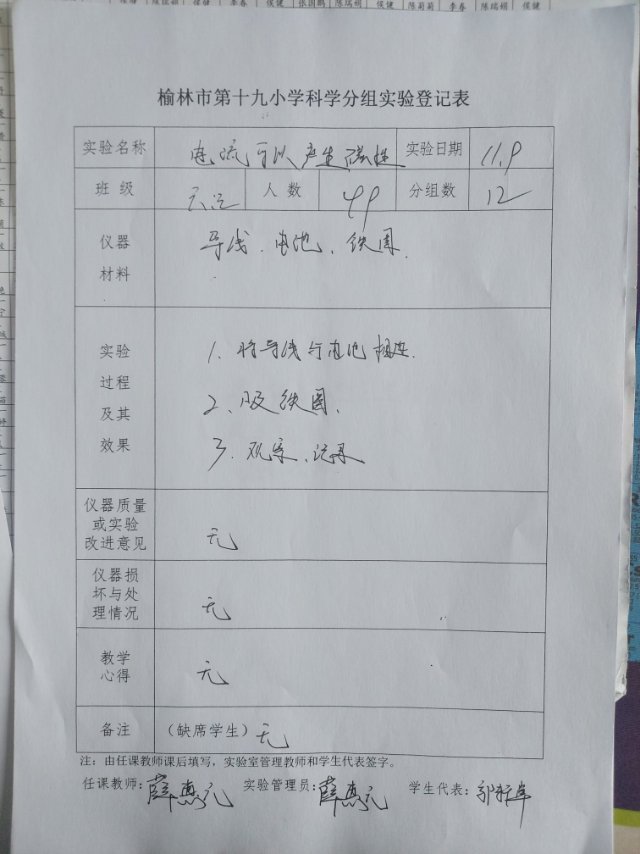 陈瑞娟 侯健 李春 侯健 张国鹏 陈瑞娟 侯健 陈菊菊 李春 陈瑞娟 侯健
榆林市第十九小学科学分组实验登记表
实验名称 电流可以产生磁性 实验日期 11.9
班 级 人 数 49 分组数 12
仪器
材料
导线、电池、铁圈.
实验
过程
及其
效果
1. 将导线与电池相连.
2、吸铁圈.
3. 观察、记录
仪器质量
或实验
改进意见
无
仪器损
坏与处
理情况
无
教学
心得
无
备注 (缺席学生) 无
注:由任课教师课后填写,实验室管理教师和学生代表签字。
任课教师:薛惠元 实验管理员:薛惠元 学生代表: